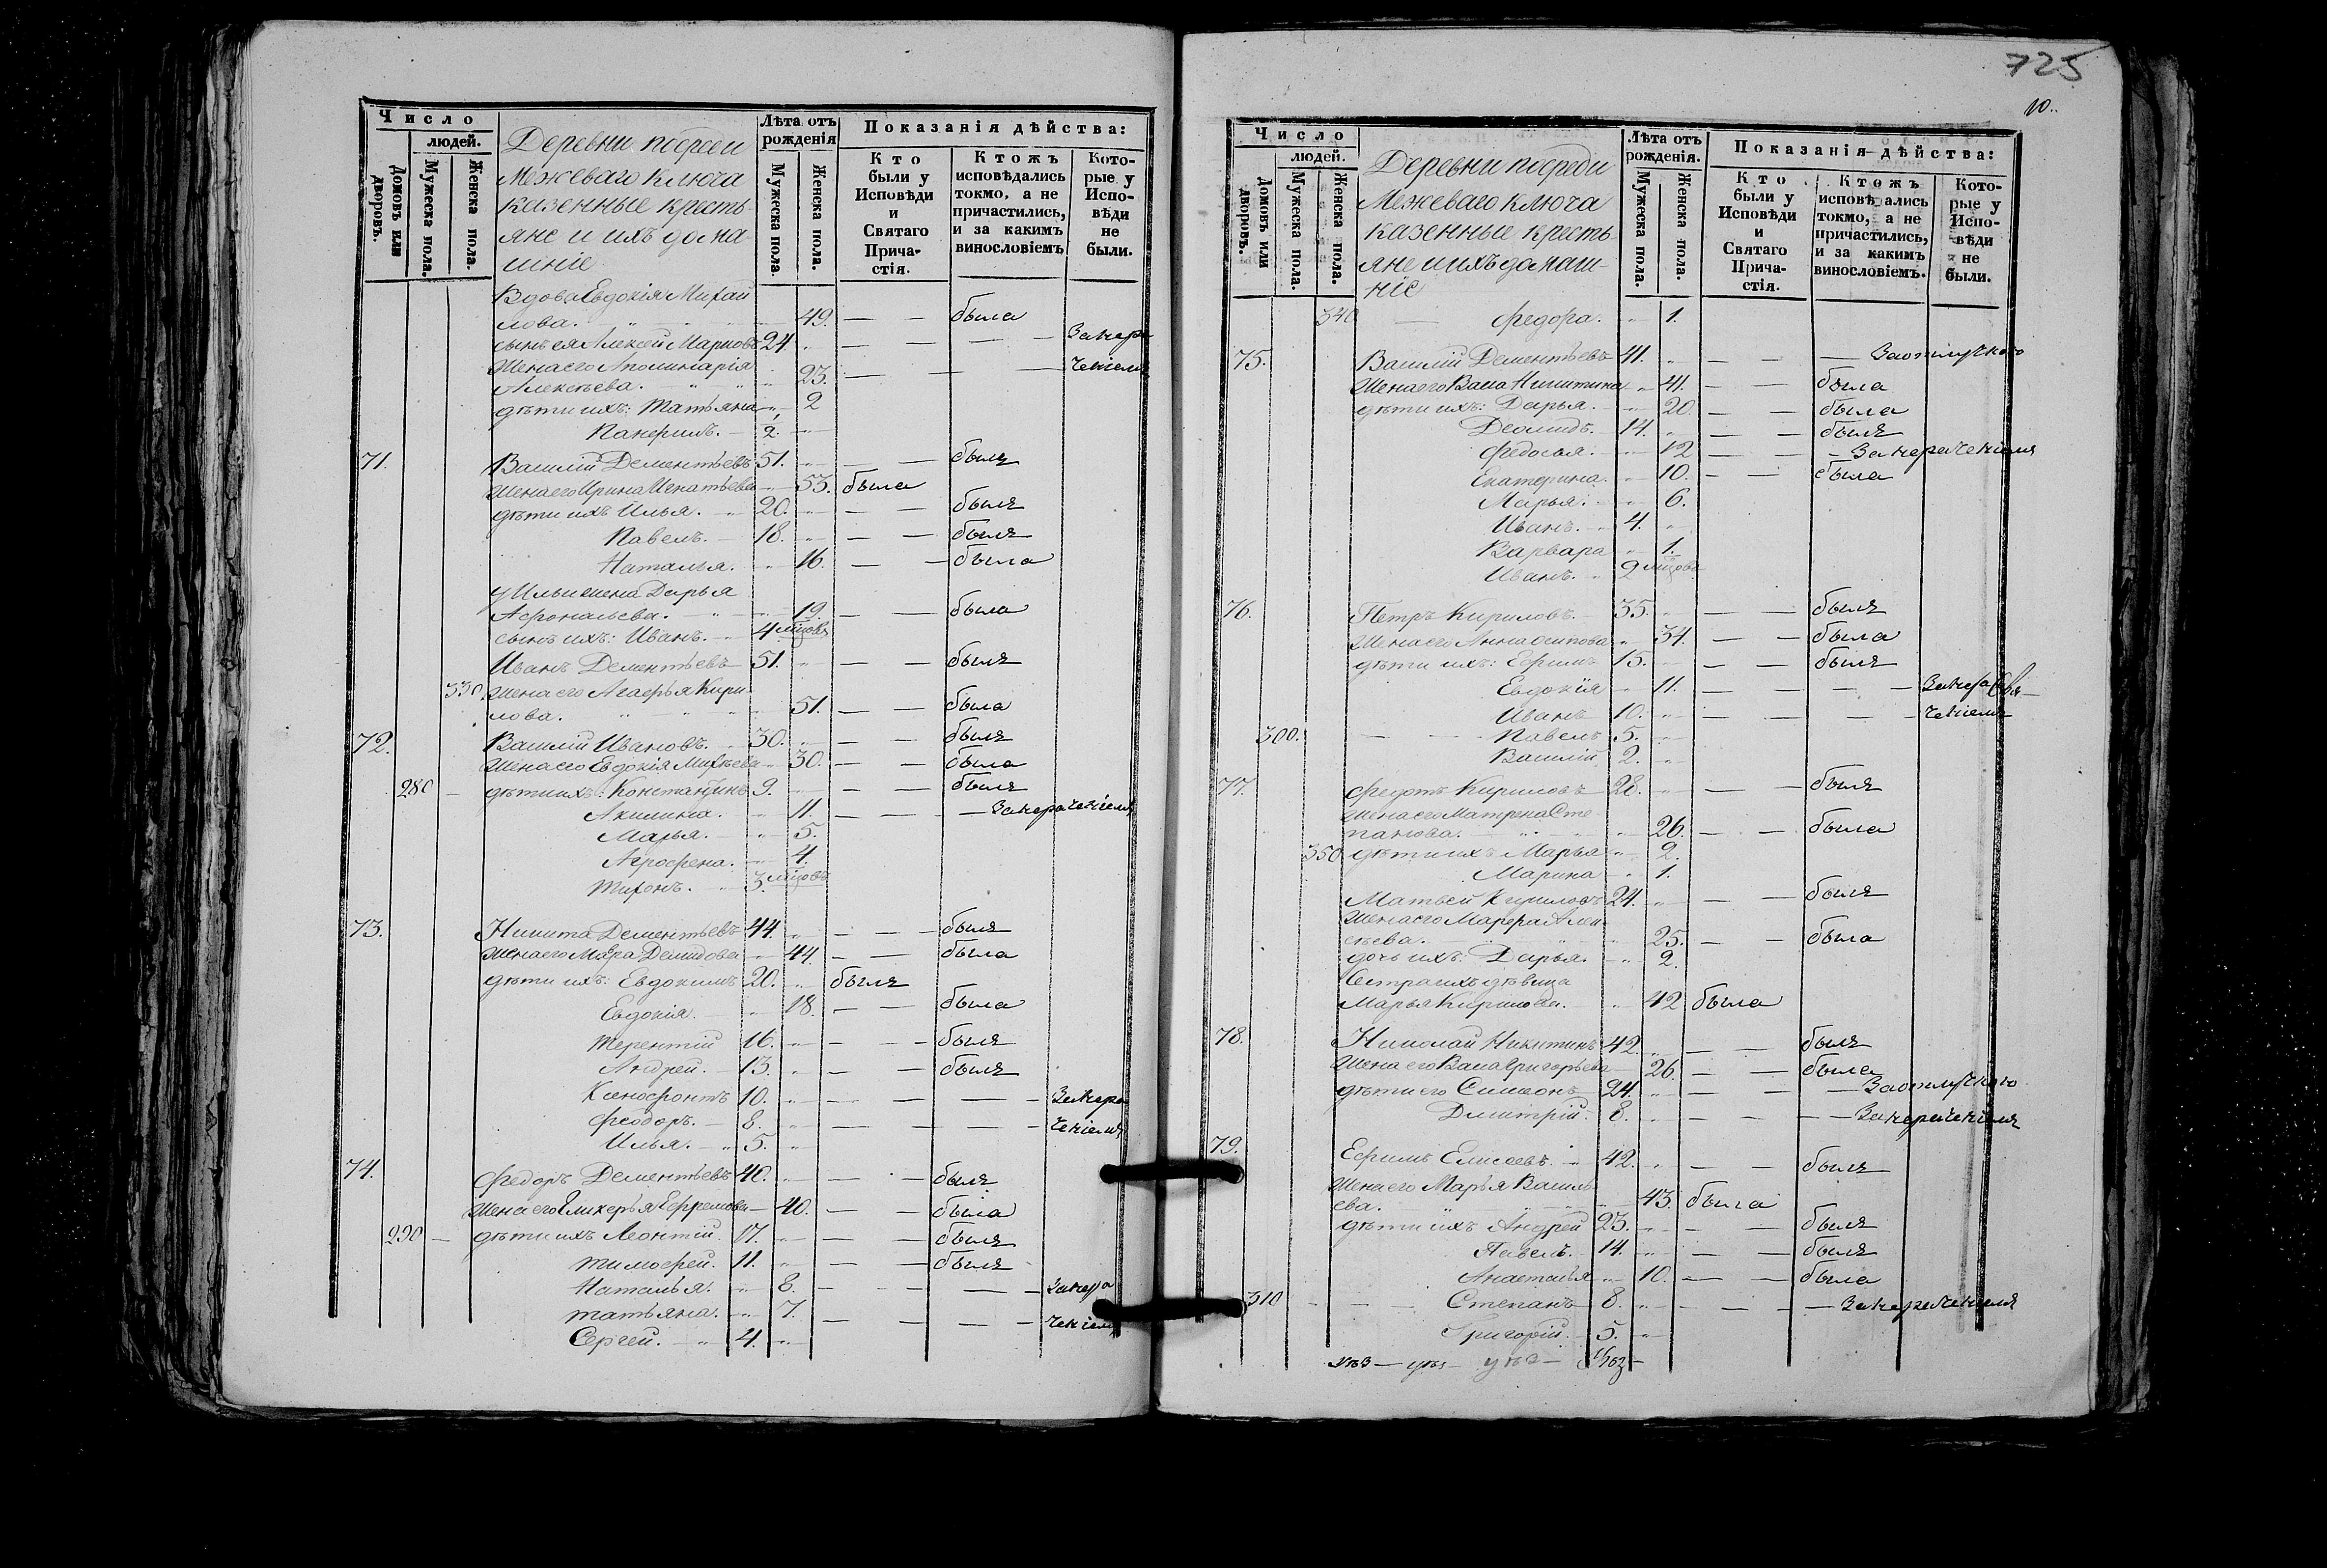 Число
людей.
Домовъ или дворовъ.
Мужеска пола.
Женска пола.
Деревни посреди
Межеваго Ключа
казенные кресть-
яне и ихъ дома-
шніе
Лѣта отъ рожденія
Мужеска пола.
Женска пола.
Показанія дѣйства:
Кто были у Исповѣди и Святаго Прича-стія.
Ктожъ исповѣдались токмо, а не причастились, и за какимъ винословіемъ
Кото-рые у Испо-вѣди не были.
Вдова Евдокія Михай
лова. 49. — — была
сынъ ея Алексей Марковъ 24. — — — — За нера
Жена его Аполинарія
Алексѣева. 23. — — — ченіемъ
дѣти ихъ: Татьяна 2
Панфилъ. 2.
71. Василій Дементьевъ 51. — — былъ
Жена его Ирина Игнатьева 53. была
дѣти ихъ Илья. 20. — — былъ
Павелъ. 18. — — былъ
Наталья. 16. — — была
у Ильи жена Дарья
19. — — была
сынъ ихъ: Иванъ. 4 мѣсяцовъ
Иванъ Дементьевъ 51. — — былъ
330. Жена его Агафья Кири
лова. 51. — — была
72. Василій Ивановъ. 30. — — былъ
Жена его Евдокія Михѣева 30. — — была
280 — дѣти ихъ: Константинъ 9. — — былъ
Акилина. 11. — — — За нераченіемъ
Марья. 5.
Агрофена. 4.
Тихонъ. 3 мѣсяцовъ
73. Никита Дементьевъ 44. — — — былъ
Жена его Мавра Демидова 44. — — была
дѣти ихъ: Евдокимъ 20. былъ
Евдокія. 18. — — была
Терентій 16. — — — былъ
Андрей. 13. — — былъ
Ксенофонтъ 10. — — — — За нера
Феодоръ. 8. — — — — ченіемъ
Илья. 5.
74. Федоръ Дементьевъ 40. — — былъ
Жена его Гликерья Ефремова — 40. — — была
290 — дѣти ихъ Леонтій. 17. — — былъ
Тимофей. 11. — — былъ
Наталья. 8. — — — — За нера
Татьяна. 7. — — — — ченіемъ
Сергей. 4.
725
10.
Число
людей.
Домовъ или дворовъ.
Мужеска пола.
Женска пола.
Деревни посреди
Межеваго Ключа
казенные кресть-
яне и ихъ домаш-
ніе
Лѣта отъ рожденія.
Мужеска пола.
Женска пола.
Показанія дѣйства:
Кто были у Исповѣди и Святаго Прича-стія.
Ктожъ исповѣдались токмо, а не причастились, и за какимъ винословіемъ.
Кото-рые у Испо-вѣди не были.
340 — Федора. 1.
75. Василій Дементьевъ 41. — — — За отлучкою
Жена его Васа Никитина 41. — — была
дѣти ихъ: Дарья. 20. — — была
Деомидъ. 14. — — былъ
Федосья. 12 — — — За нераченіемъ
Екатерина. 10. — — была
Марья. 6.
Иванъ. 4.
Варвара 1.
Иванъ. 2 мѣсяцовъ
76. Петръ Кириловъ. 35. — — былъ
Жена его Анна Осипова 34. — — была
дѣти ихъ: Ефимъ 15. — — былъ
Евдокія 11. — — — — За нера
Иванъ 10. — — — — ченіемъ
300. — — Павелъ 5.
Василій. 2.
77. Федотъ Кириловъ 28. — — былъ
Жена его Матрена Сте
панова. 26. — — была
350 дѣти ихъ Марья 2.
Марина 1.
Матвей Кириловъ 24. — — былъ
Жена его Марфа Алек
сѣева. 25. — — была
дочь ихъ: Дарья. 2.
Сестра ихъ дѣвица
Марья Кирилова. 42 была
78. Николай Никитинъ 42. — — былъ
Жена его Васа Григорьева 26. — — была
дѣти его Симеонъ 24. — — — За отлучкою
Дмитрій. 8. — — — — За нераченіемъ
79. Ефимъ Елисеевъ. 42. — — былъ
Жена его Марья Василь
ева. 43. была
дѣти ихъ Андрей 23. — — былъ
Павелъ. 14. — — былъ
Анастасья 10. — — была
310 — — Степанъ 8. — — — За нераченіемъ
Григорій. 5.